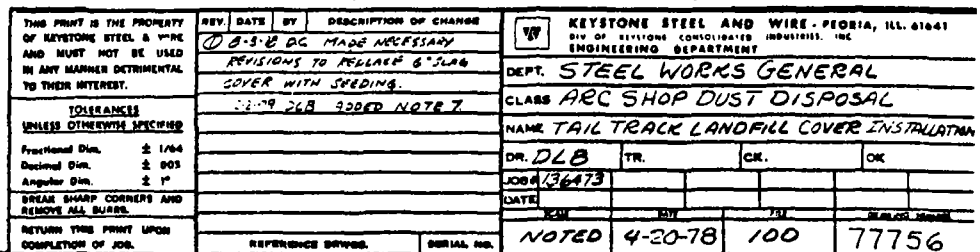 THIS PRINT IS THE PROPERTY
OF KEYSTONE STEEL & WIRE
AND MUST NOT BE USED
IN ANY MANNER DETRIMENTAL
TO THEIR INTEREST.
TOLERANCES
UNLESS OTHERWISE SPECIFIED
Fractional Dim. ± 1/64
Decimal Dim. ± .003
Angular Dim. ± 1°
BREAK SHARP CORNERS AND
REMOVE ALL BURRS.
RETURN THIS PRINT UPON
COMPLETION OF JOB.
REV. DATE BY DESCRIPTION OF CHANGE
① DG MADE NECESSARY
REVISIONS TO REPLACE 6" SLAG
COVER WITH SEEDING.
DLB ADDED NOTE 7.
REFERENCE DRWGS. SERIAL NO.
KEYSTONE STEEL AND WIRE - PEORIA, ILL. 61641
DIV OF KEYSTONE CONSOLIDATED INDUSTRIES, INC
ENGINEERING DEPARTMENT
DEPT. STEEL WORKS GENERAL
CLASS ARC SHOP DUST DISPOSAL
NAME TAIL TRACK LANDFILL COVER INSTALLATION
DR. DLB TR. CK. OK
JOB# 136473
DATE
SCALE DATE FILE
NOTED 4-20-78 100 77756